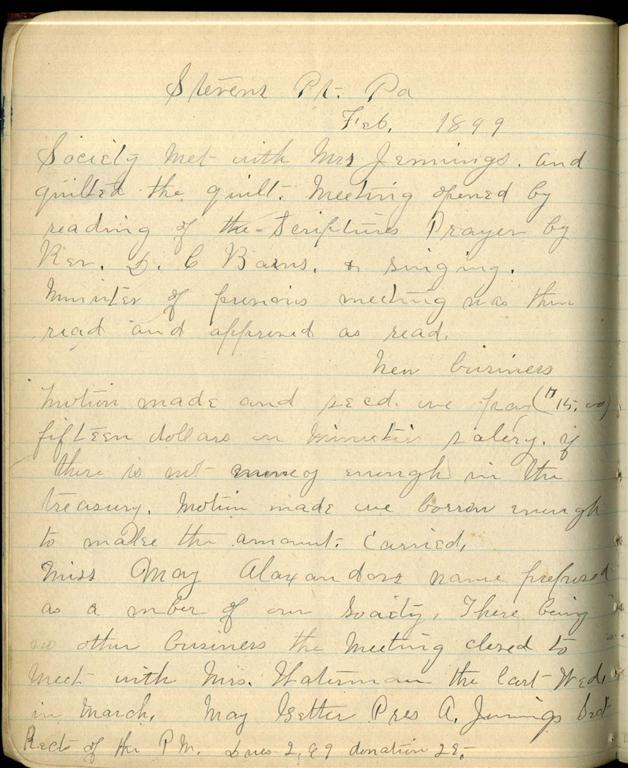 Stevens Pt. Pa
Feb. 1899
Society met with Mrs Jennings. and
quilted the quilt. Meeting opened by
reading of the Scriptures Prayer by
Rev. D. C Barns. & singing.
Minutes of previous meeting was then
read and approved as read.
New business
Motion made and secd. we pay ($15.00)
fifteen dollars on Ministers salery. if
there is not money enough in the
treasury. Motion made we borrow enough
to make the amount. Carried.
Miss May Alaxanders name proposed
as a mber of our Society. There being
no other business the Meeting closed to
meet with Mrs. Waterman the last Wed.
in March. May Getter Pres A. Jennings Sect
Rects of the P M. Dues 2,89 donation 25.